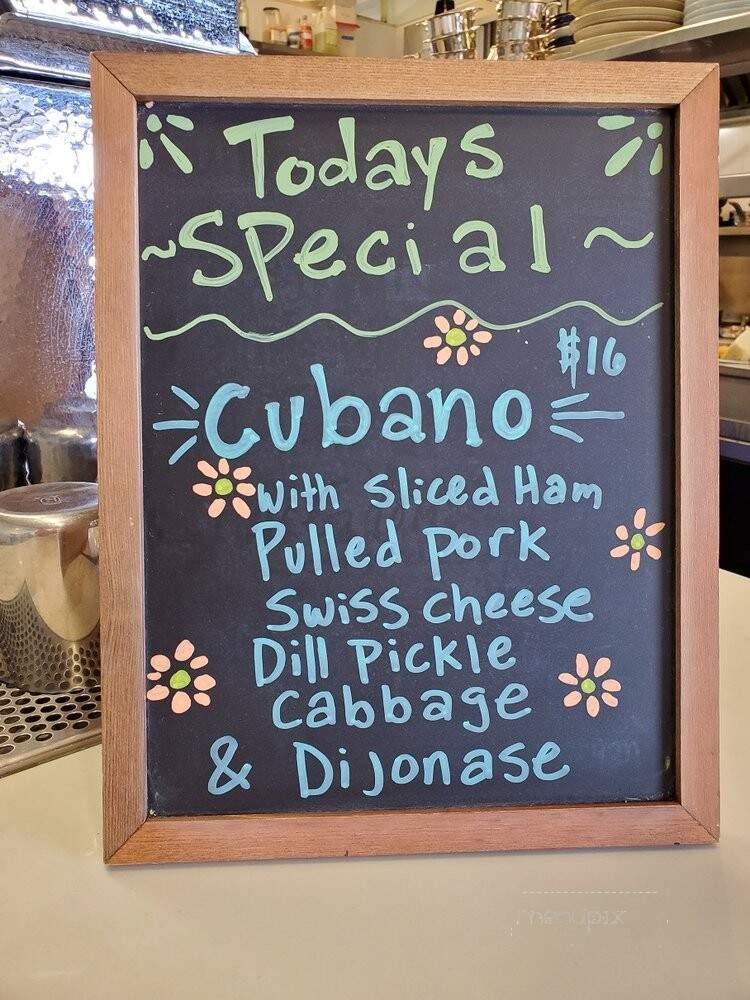 Todays
~Special~
$16
Cubano
with sliced Ham
Pulled pork
Swiss cheese
Dill Pickle
cabbage
& Dijonase
menupix